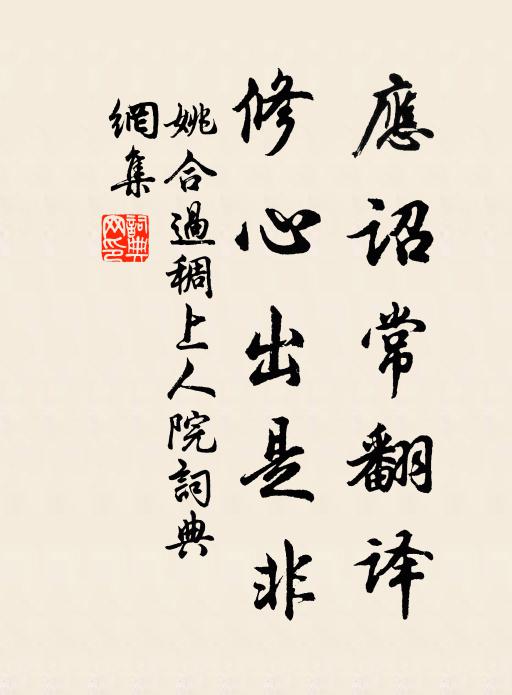 應诏常翻译
修心出是非
姚合過稠上人院詞典
網集
詞典網印